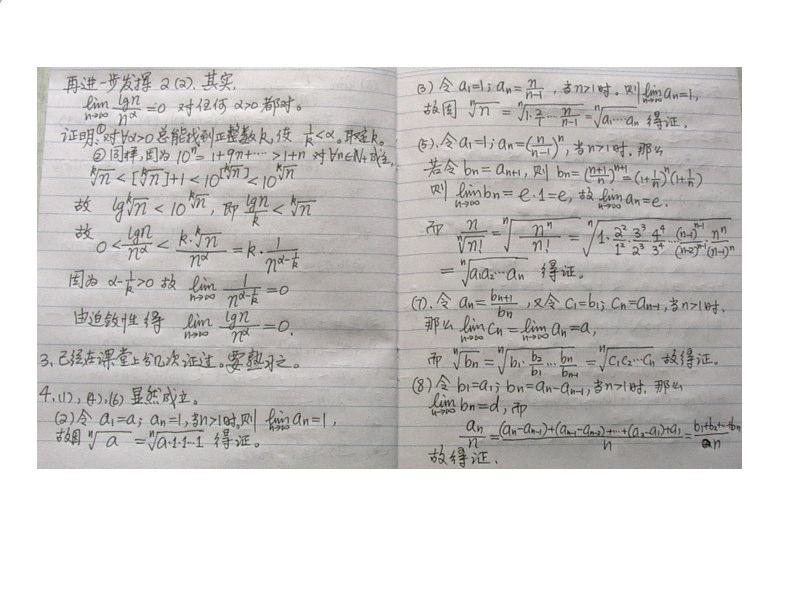 再进一步发挥 2(2). 其实,
lim n→∞ lgn/n^α = 0 对任何 α>0 都对。
证明:①对∀α>0 总能找到正整数k,使 1/k<α. 取定k.
②同样,因为 10^n = 1+9n+…>1+n 对∀n∈N+成立,
ᵏ√n < [ᵏ√n]+1 < 10^[ᵏ√n] < 10^ᵏ√n
故 lg ᵏ√n < 10^ᵏ√n, 即 lgn/k < ᵏ√n
故
0 < lgn/n^α < k·ᵏ√n/n^α = k·1/n^(α-1/k)
因为 α-1/k>0 故 lim n→∞ 1/n^(α-1/k) = 0
由迫敛性得 lim n→∞ lgn/n^α = 0.
3. 已经在课堂上几次证过。要熟习之。
4. (1), (4), (6) 显然成立。
(2) 令 a₁=a; aₙ=1, 当n>1时. 则 lim n→∞ aₙ=1,
故因 ⁿ√a = ⁿ√a·1·1…1 得证。
(3) 令 a₁=1; aₙ=n/(n-1), 当n>1时。则 lim n→∞ aₙ=1,
故因 ⁿ√n = ⁿ√(1·2/1…n/(n-1)) = ⁿ√(a₁…aₙ) 得证.
(5). 令 a₁=1; aₙ=(n/(n-1))^n, 当n>1时, 那么
若令 bₙ=aₙ₊₁, 则 bₙ=((n+1)/n)^(n+1)=(1+1/n)^n(1+1/n)
则 lim n→∞ bₙ = e·1=e, 故 lim n→∞ aₙ=e.
而 n/ⁿ√n! = ⁿ√(n^n/n!) = ⁿ√(1·2²/1²·3³/2³·4⁴/3⁴…(n-1)^(n-1)/(n-2)^(n-1)·n^n/(n-1)^n)
= ⁿ√(a₁a₂…aₙ) 得证.
(7). 令 aₙ=bₙ₊₁/bₙ, 又令 c₁=b₁; cₙ=aₙ₋₁, 当n>1时.
那么 lim n→∞ cₙ = lim n→∞ aₙ=a,
而 ⁿ√bₙ = ⁿ√(b₁·b₂/b₁…bₙ/bₙ₋₁) = ⁿ√(c₁c₂…cₙ) 故得证。
(8) 令 b₁=a₁; bₙ=aₙ-aₙ₋₁, 当n>1时. 那么
lim n→∞ bₙ=d, 而
aₙ/n = ((aₙ-aₙ₋₁)+(aₙ₋₁-aₙ₋₂)+…+(a₂-a₁)+a₁)/n = (b₁+b₂+…+bₙ)/n
故得证.